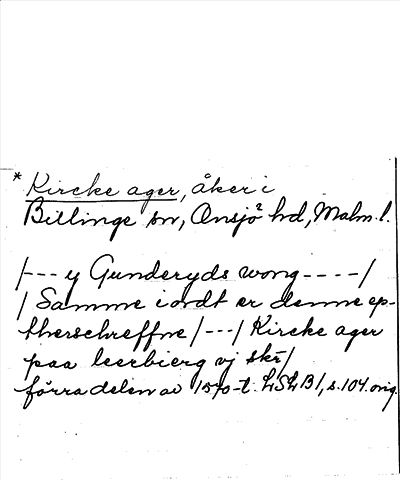 * Kircke ager, åker i
Billinge sn, Onsjö hd, Malm. l.
/--- y Gunderyds wong ----/
/ Samme iordt er denne ep-
therschreffne /---/ Kircke ager
paa leerbierg vj sk /
förra delen av 1570-t. LSLB 1, s. 104. orig.